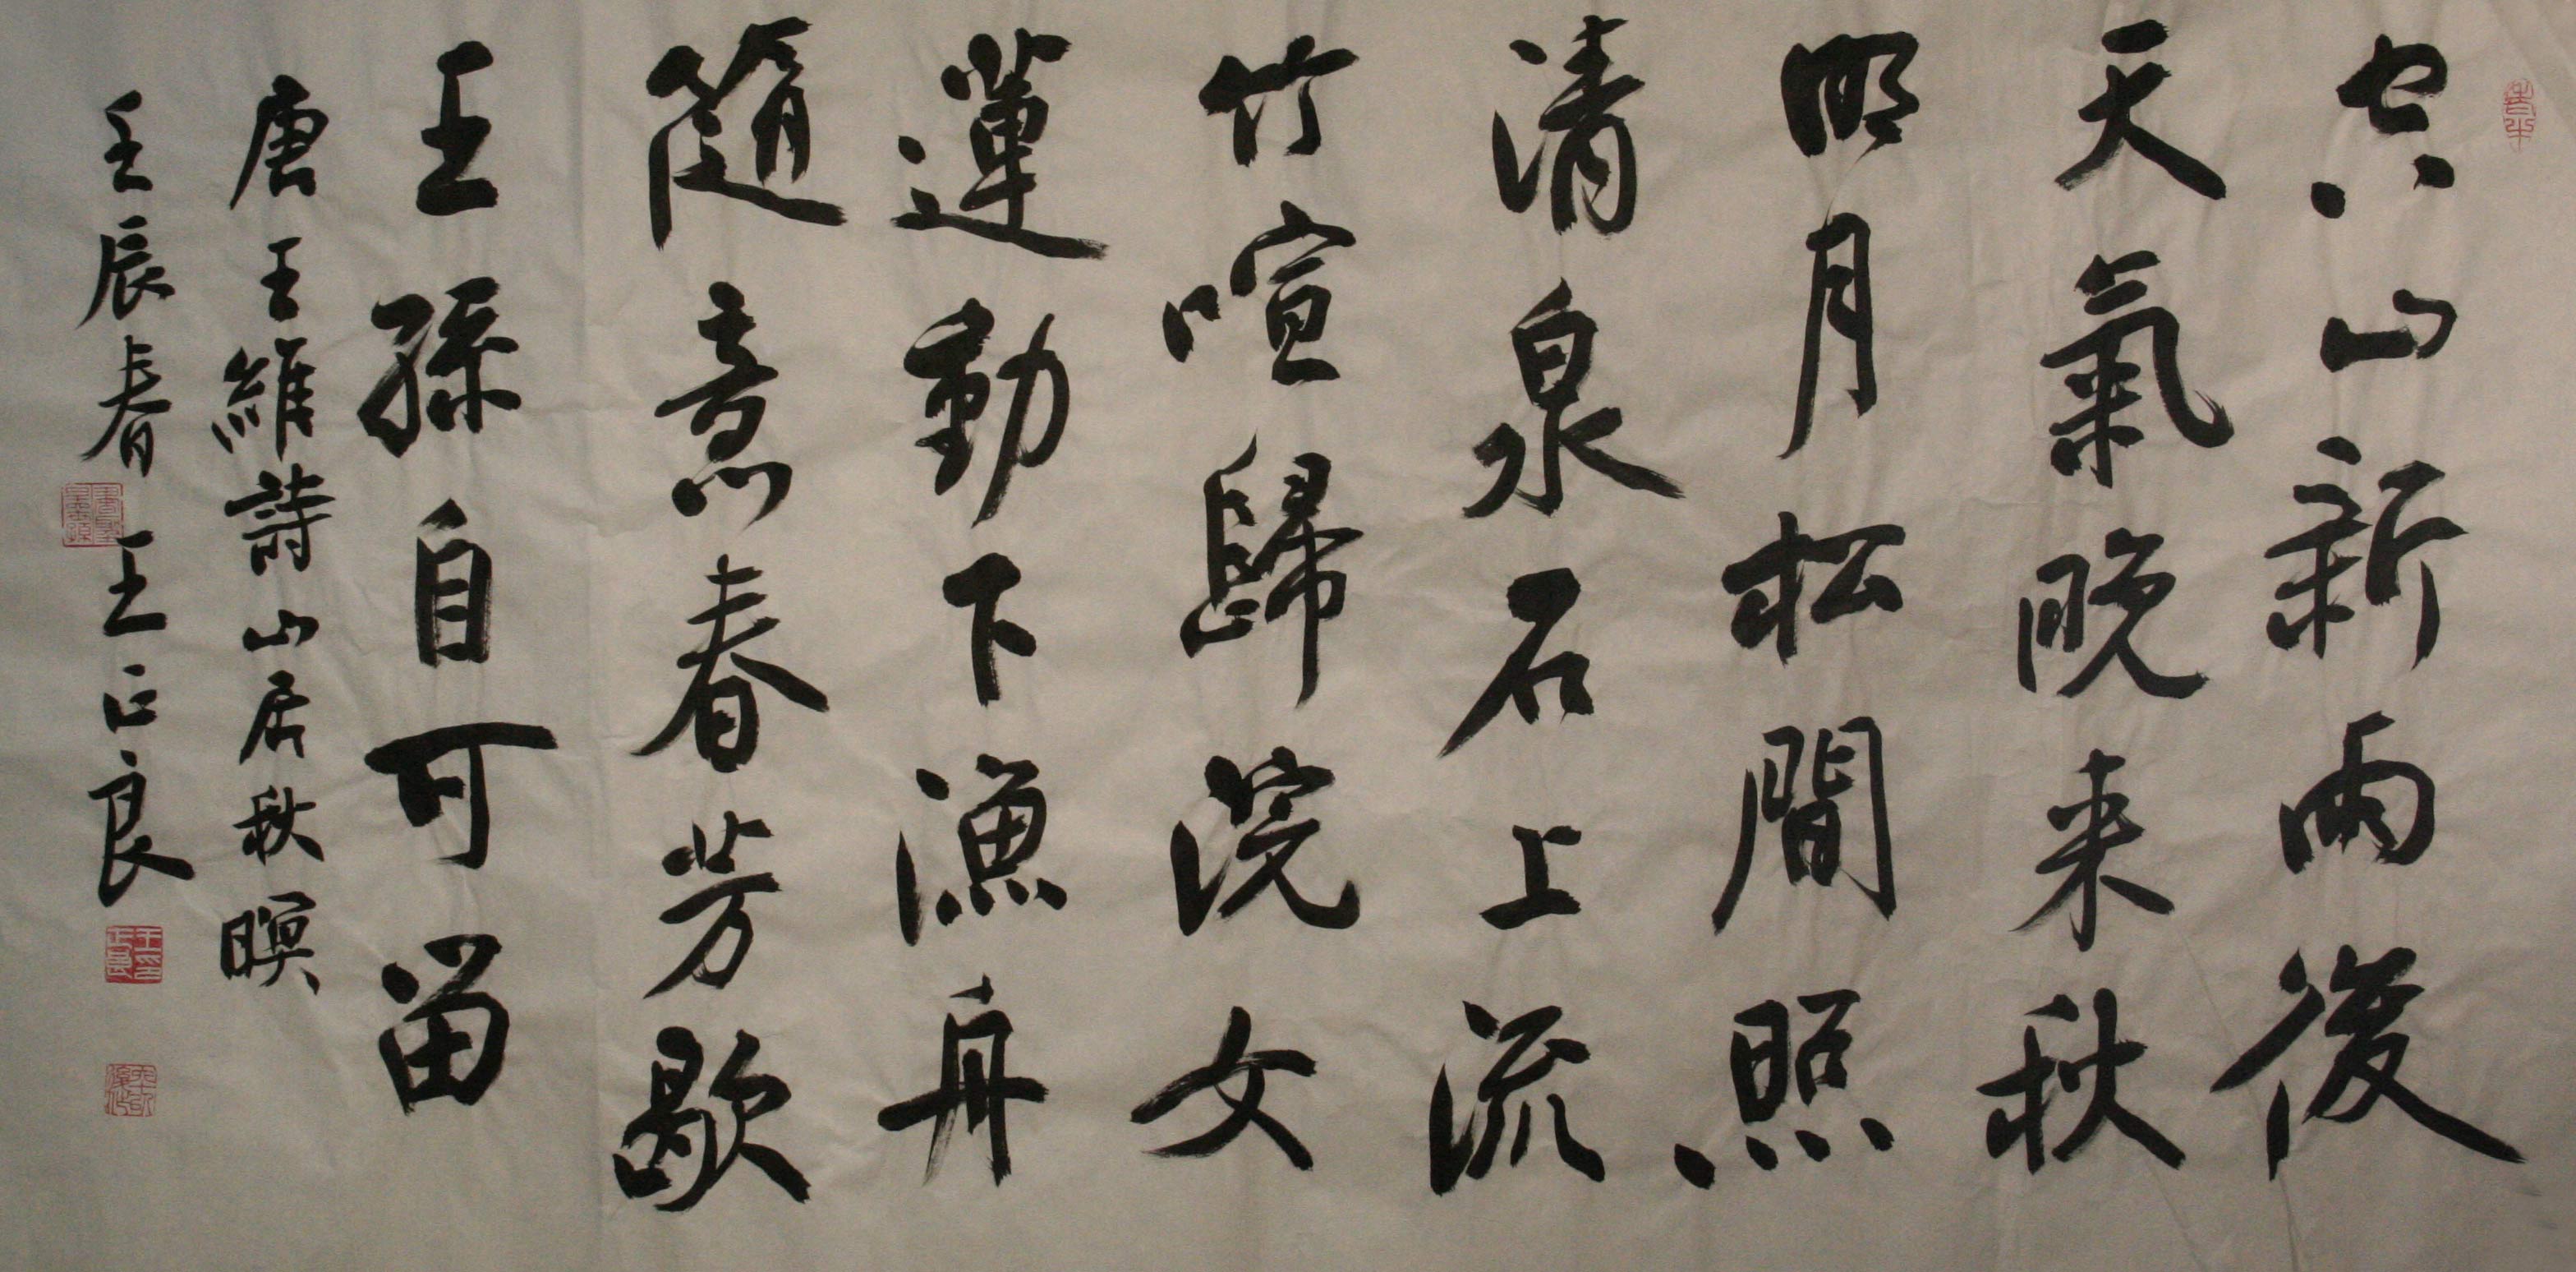 空山新雨後
天氣晚来秋
明月松間照
清泉石上流
竹喧歸浣女
蓮動下漁舟
隨意春芳歇
王孫自可留
唐王維詩山居秋暝
壬辰春王正良